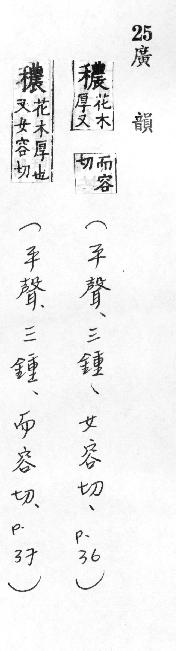 25廣韻
穠花木厚又而容切（平聲、三鍾、女容切、p.36）
穠花木厚也又女容切（平聲、三鍾、而容切、p.37）